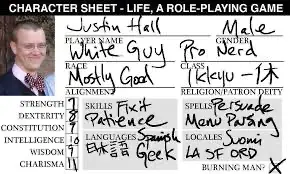 CHARACTER SHEET - LIFE, A ROLE-PLAYING GAME
Justin Hall Male
PLAYER NAME GENDER
White Guy Pro Nerd
RACE CLASS
Mostly Good Ikkyu 一休
ALIGNMENT RELIGION/PATRON DEITY
STRENGTH 7 SKILLS Fixit SPELLS Persuade
DEXTERITY 8 Patience Menu Parsing
CONSTITUTION
INTELLIGENCE 10 LANGUAGES Spanish LOCALES Suomi
WISDOM 9 日本語 Geek LA SF ORD
CHARISMA 11 BURNING MAN? X